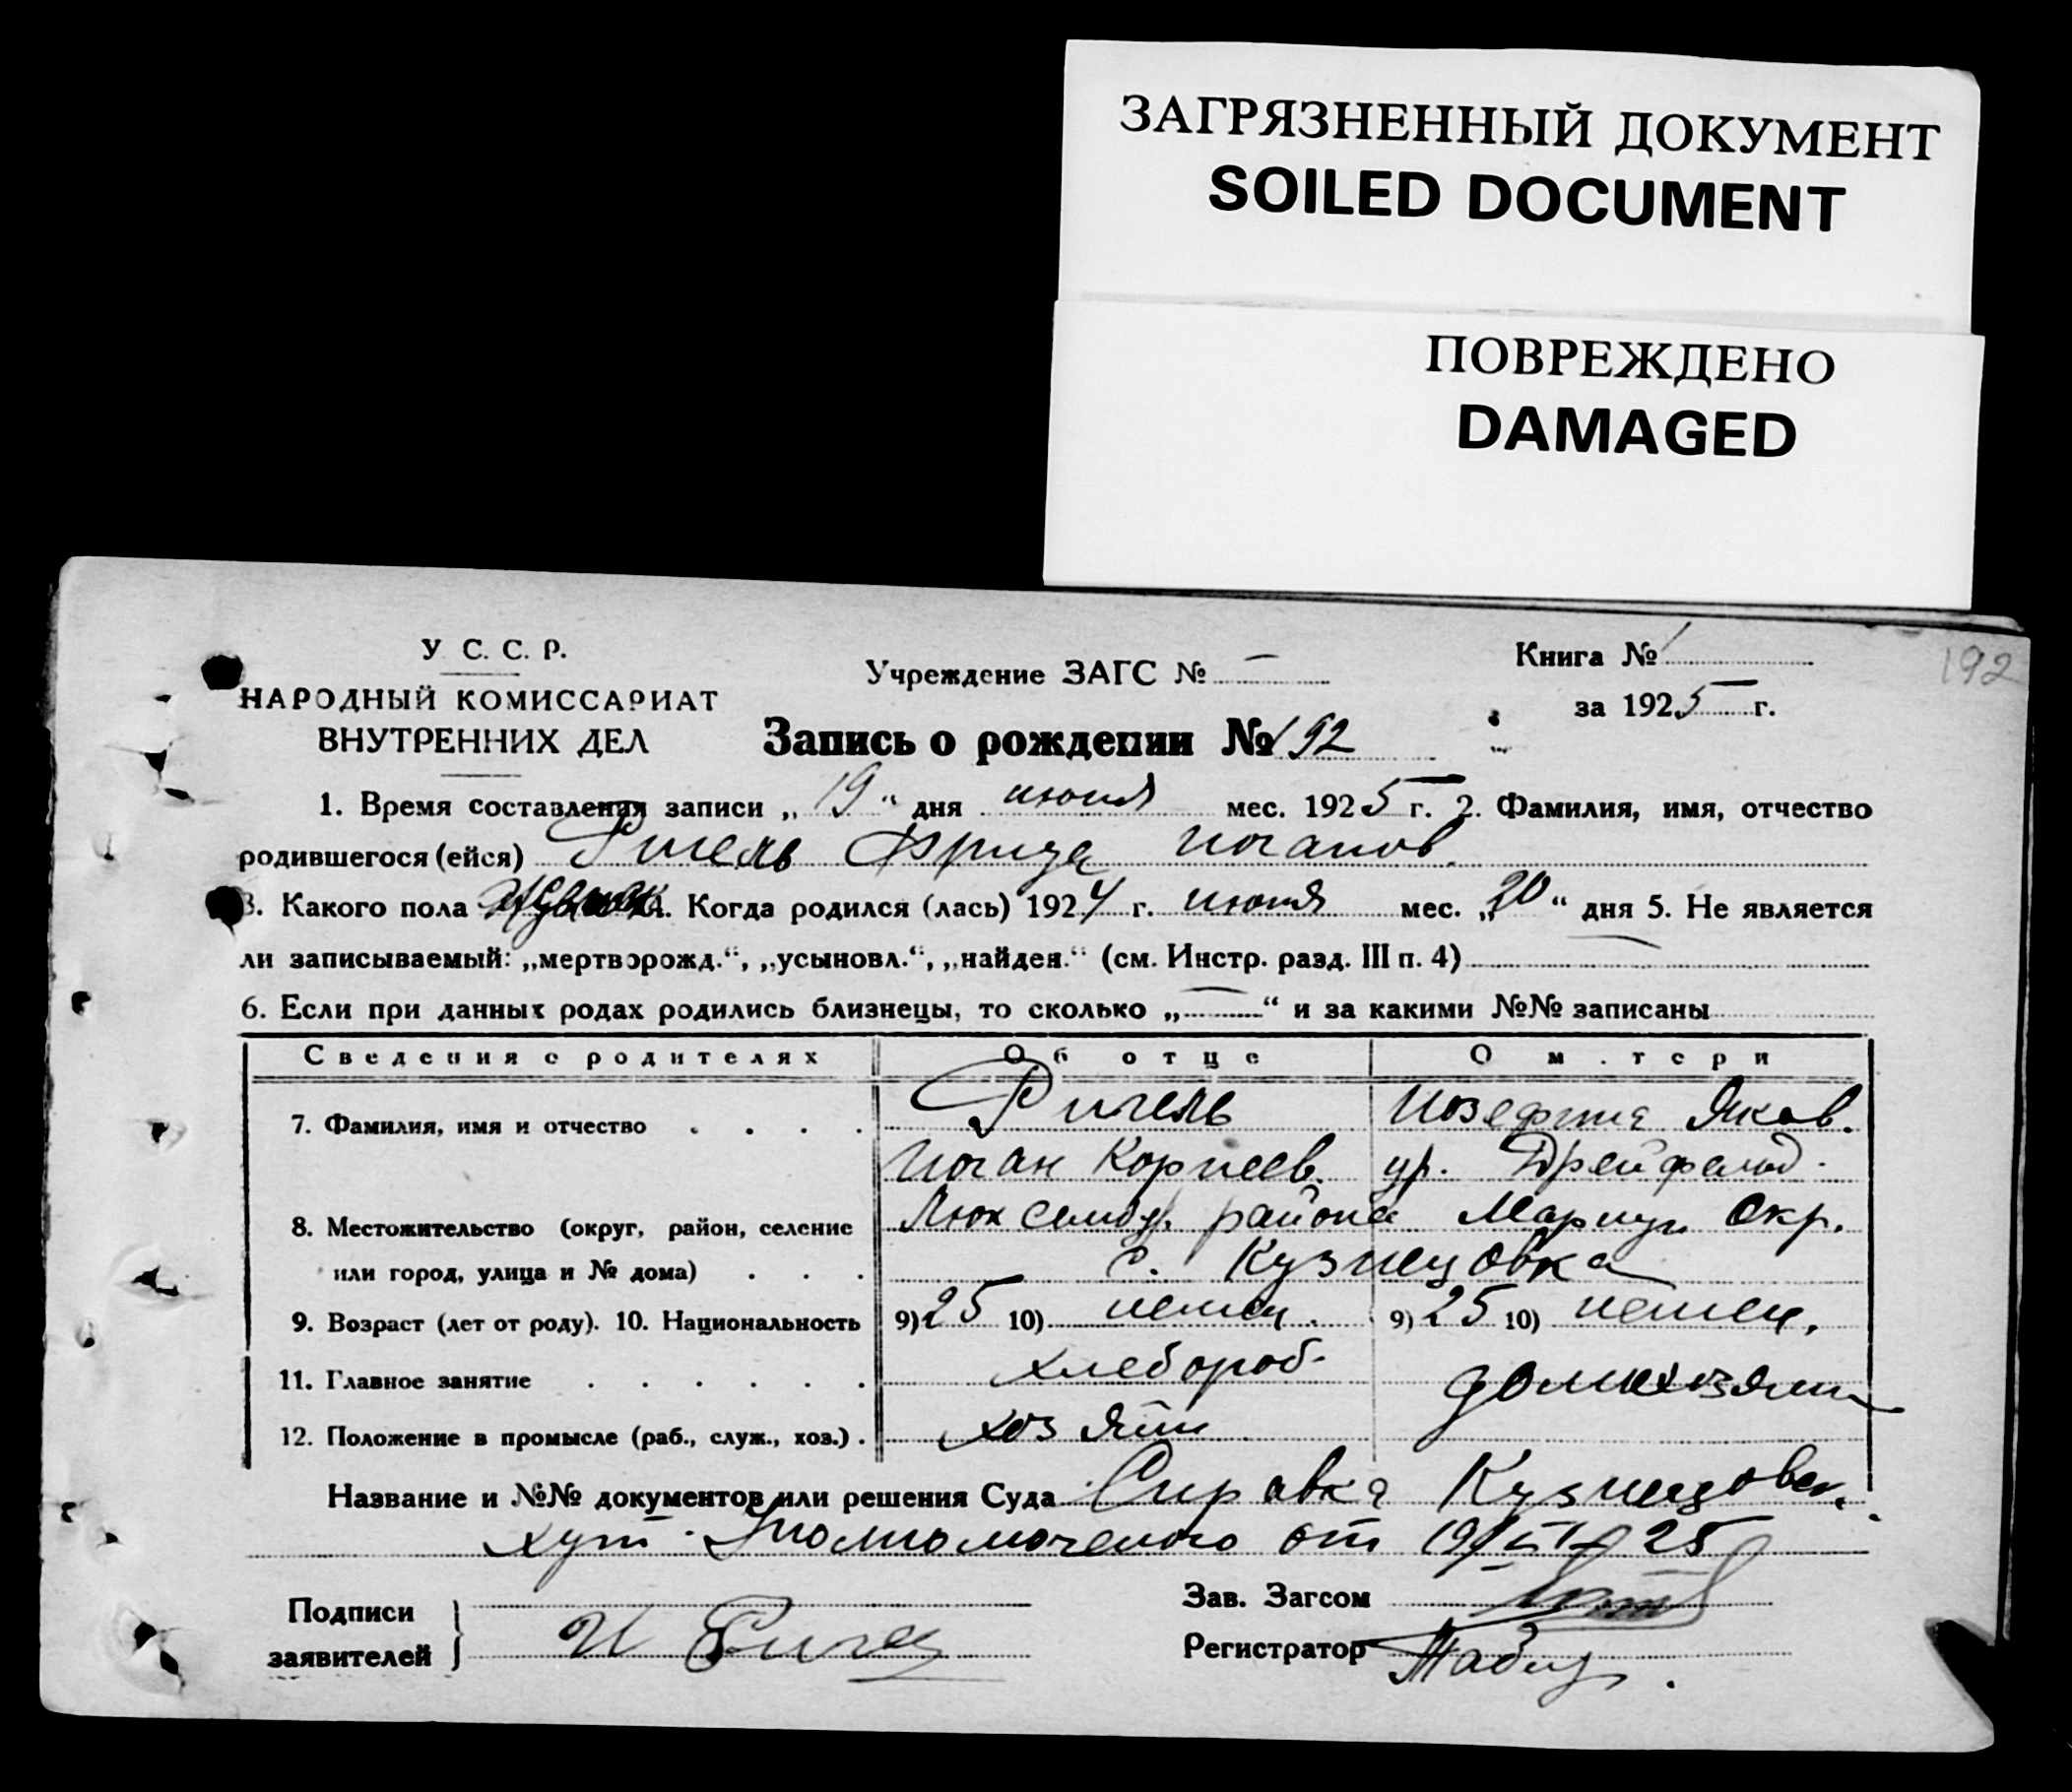 ЗАГРЯЗНЕННЫЙ ДОКУМЕНТ
SOILED DOCUMENT
ПОВРЕЖДЕНО
DAMAGED
У С. С. Р.
НАРОДНЫЙ КОМИССАРИАТ
ВНУТРЕННИХ ДЕЛ
Учреждение ЗАГС № —
Книга № 1
за 1925 г.
192
Запись о рождении № 192
1. Время составления записи „19“ дня июня мес. 1925 г. 2. Фамилия, имя, отчество
родившегося (ейся) Ригель Фрида Иоганов.
3. Какого пола 4. Когда родился (лась) 1924 г. июня мес. „20“ дня 5. Не является
ли записываемый: „мертворожд.“, „усыновл.“, „найден.“ (см. Инстр. разд. III п. 4) —
6. Если при данных родах родились близнецы, то сколько „—“ и за какими №№ записаны
Сведения о родителях Об отце О м.тери
7. Фамилия, имя и отчество Ригель Иозефина Яков.
Иоган Корнеев. ур. Дрейфельд.
8. Местожительство (округ, район, селение Люксембург. района Мариуп. Окр.
или город, улица и № дома) с. Кузнецовка
9. Возраст (лет от роду). 10. Национальность 9) 25 10) немец. 9) 25 10) немец.
11. Главное занятие хлебороб. домохозяин
12. Положение в промысле (раб., служ., хоз.) хозяин
Название и №№ документов или решения Суда Справка Кузнецовск.
хут. Уполномоченого от 19/VI 25
Подписи
заявителей И Ригель
Зав. Загсом
Регистратор